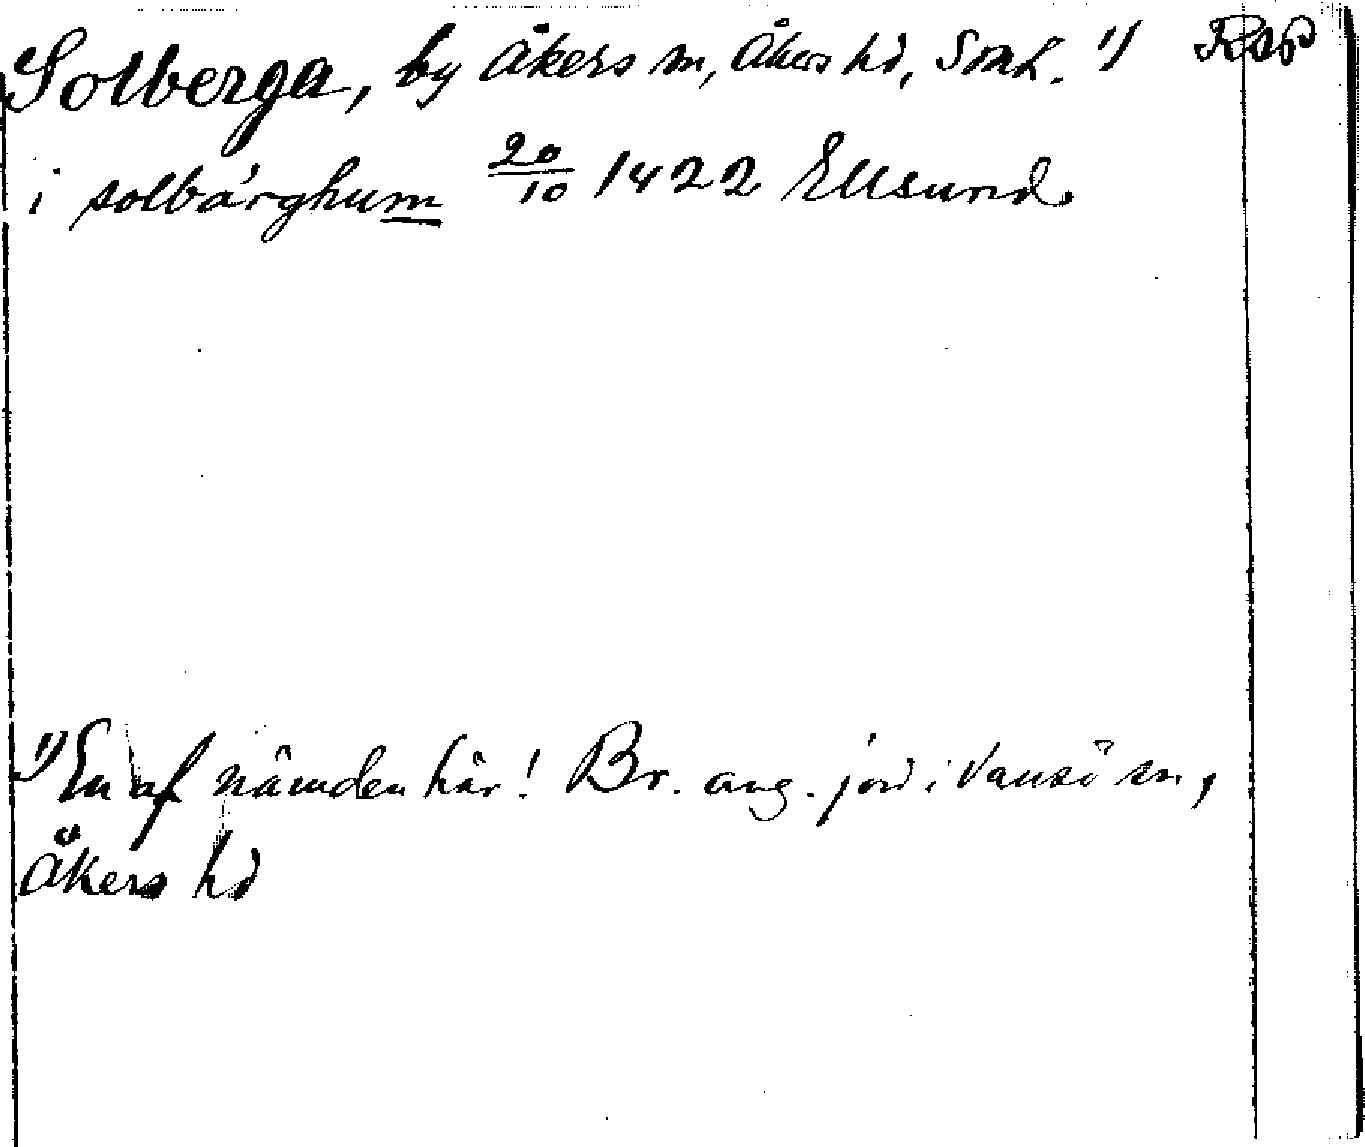 Solberga, by Åkers sn, Åkers hd, Söd. 1) RAP
i solbärghum 20/10 1422 Ellsund
1) En af nämnden här! Br. ang. jord i Vansö sn,
Åkers hd